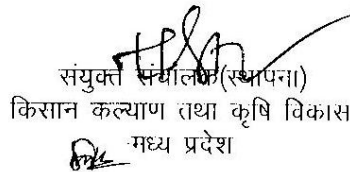 संयुक्त संचालक(स्थापना)
किसान कल्याण तथा कृषि विकास
मध्य प्रदेश